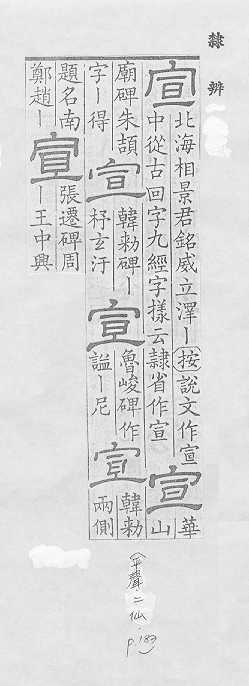 隸辨
宣
北海相景君銘威立澤丨按說文作宣
中從古回字九經字樣云隸省作宣
宣
華
山
廟碑朱頡
字丨得
宣
韓勑碑丨
杼玄汙
宣
魯峻碑作
謚丨尼
宣
韓勑
兩側
題名南
鄭趙丨
宣
張遷碑周
丨王中興
(平聲二仙.
p.183)